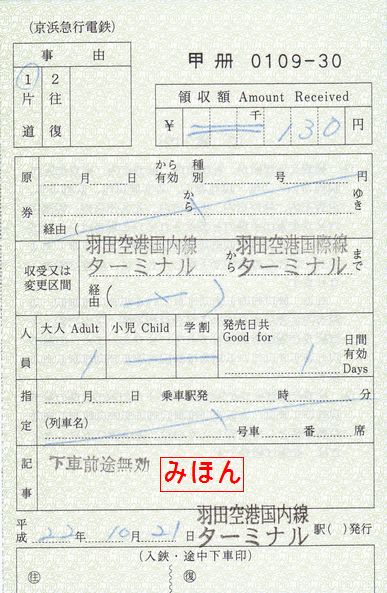 (京浜急行電鉄)
事由
甲 册 0109-30
1 片道
2 往復
領収額 Amount Received
¥ 千 130 円
原券
月 日 から有効 種別 号 円
から ゆき
経由( )
収受又は変更区間
羽田空港国内線ターミナル から 羽田空港国際線ターミナル まで
経由( )
人員
大人 Adult 小児 Child 学割 発売日共 Good for 日間有効 Days
1 1
指定
月 日 乗車駅発 時 分
(列車名) 号車 番 席
記事
下車前途無効
みほん
平成 22年 10月 21日 羽田空港国内線ターミナル 駅( )発行
(入鋏・途中下車印)
往 復